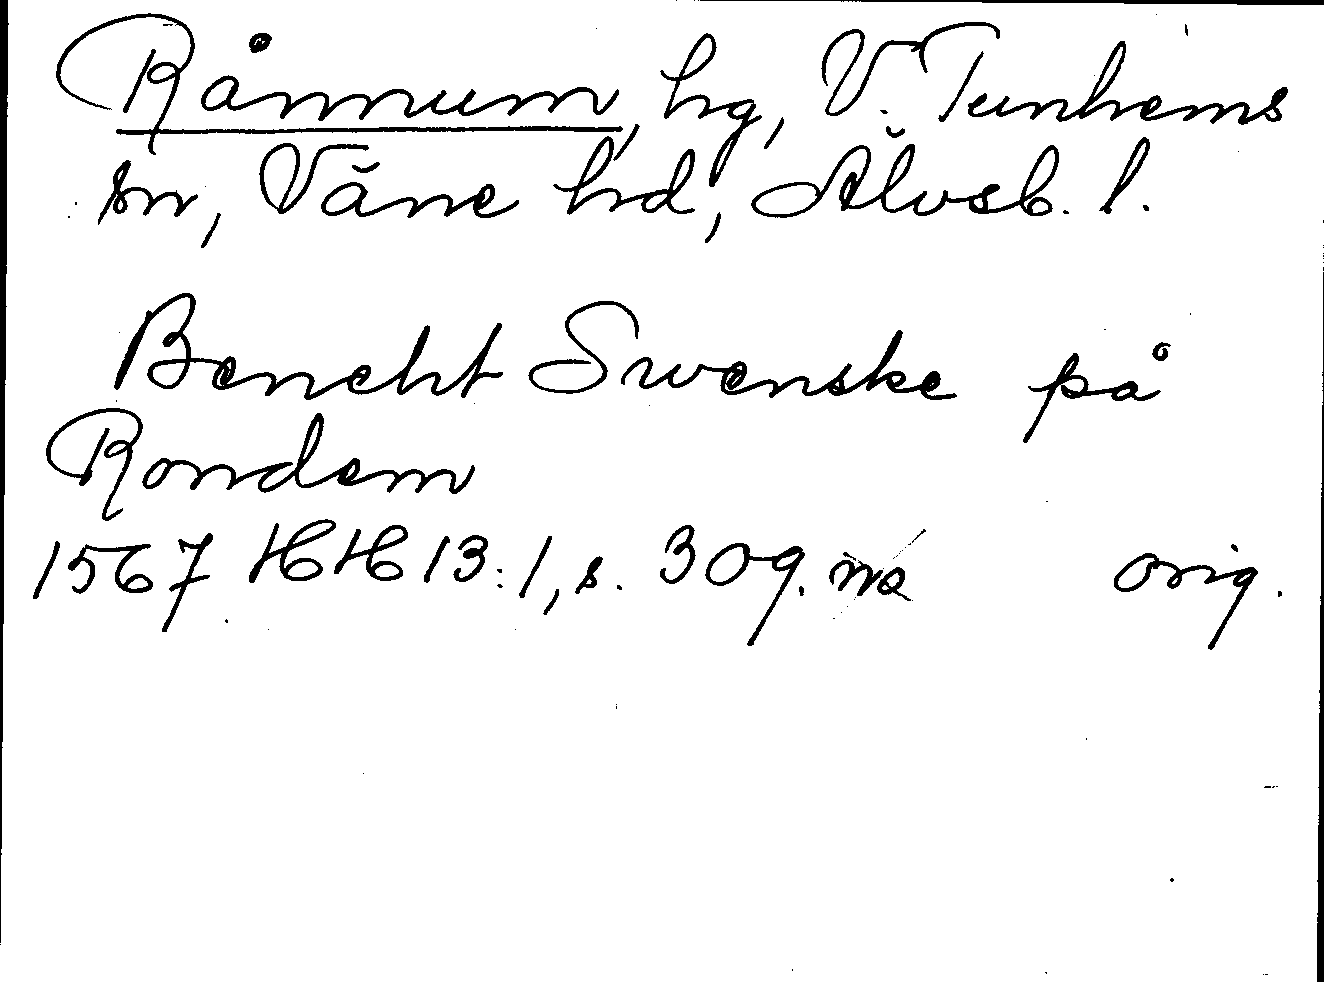 Rånnum, hg, V. Tunhems
sn, Väne hd, Älvsb. l.
Bencht Swenske på
Rondem
1567 HH 13:1, s. 309. orig.